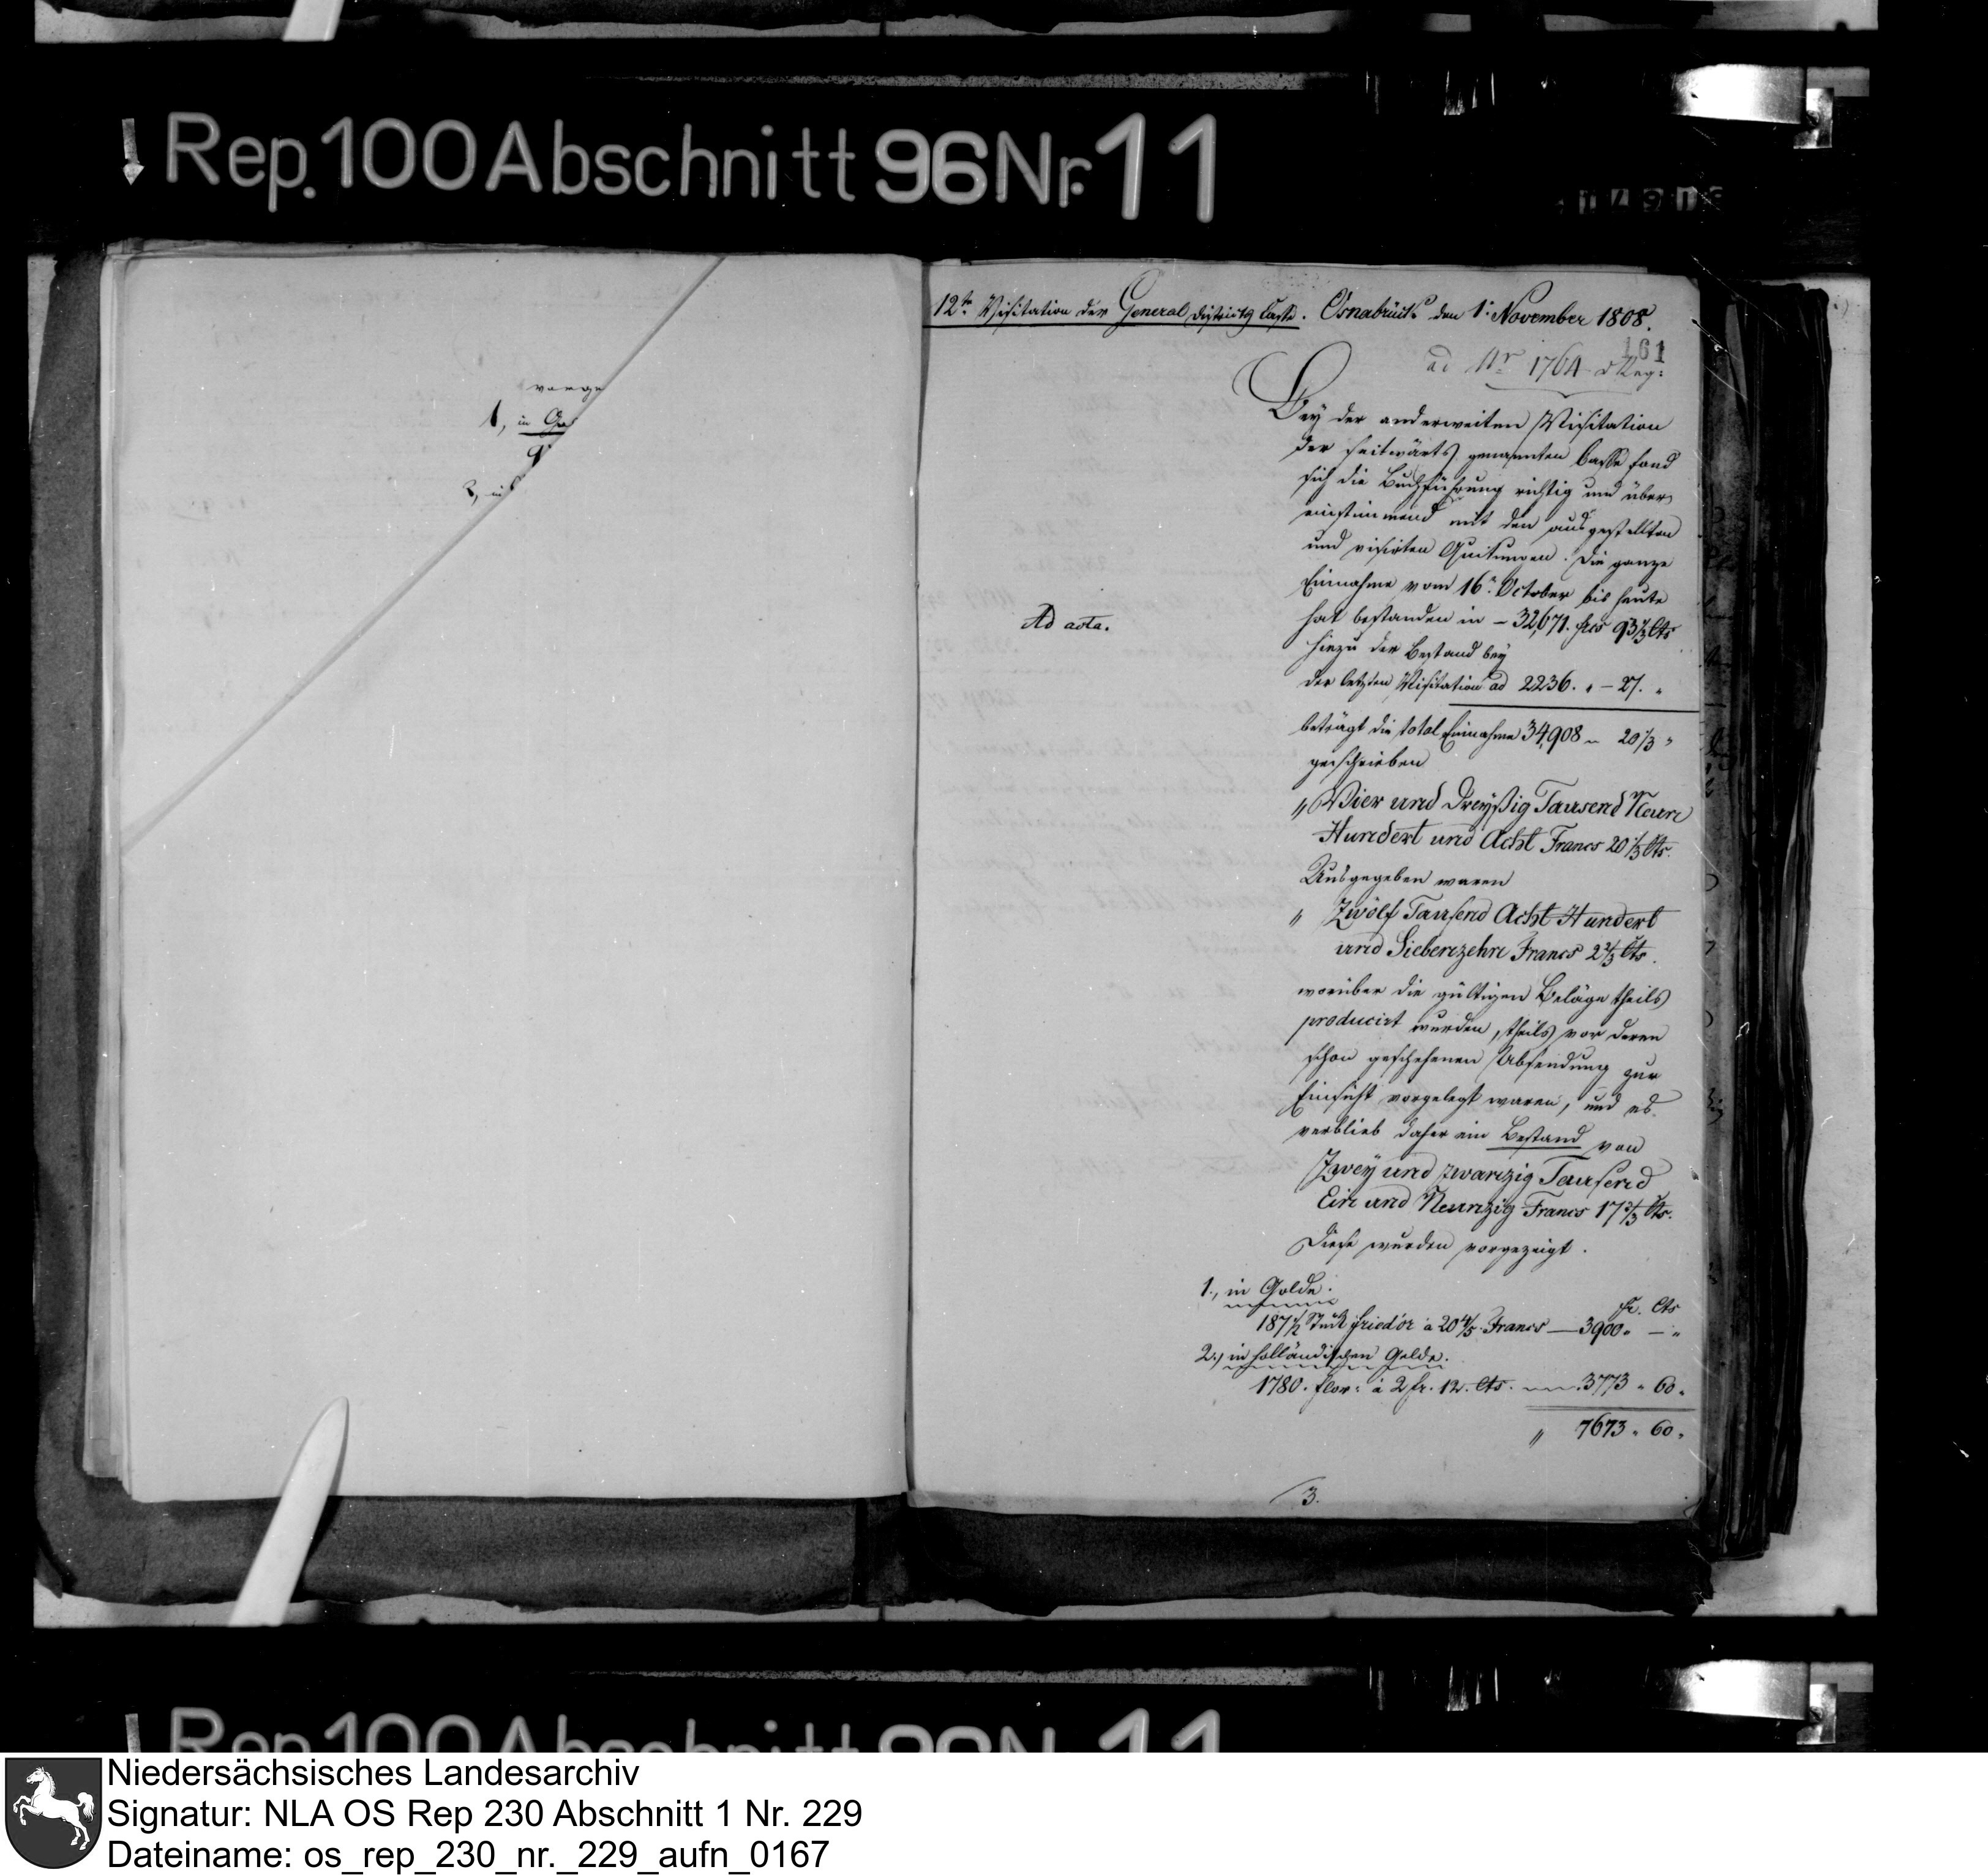 Rep. 100 Abschnitt 96 Nr. 11
vorge
1, in Go
2, in
12te Visitation der General Districts Casse. Osnabrück den 1. November 1808.
161
ad Nr 1764 d Reg:
Bey der anderweiten Visitation
der seitwärts genannten Casse fand
sich die Buchführung richtig und über
einstimmend mit den ausgestellten
und visirten Quitungen. Die ganze
Einnahme vom 16n October bis heute
hat bestanden in – 32,671. frcs 93 1/3 Cts
hiezu der Bestand bey
der letzten Visitation ad 2236. " – 27. "
beträgt die total Einnahme 34,908 – 20 1/3 "
geschrieben
Ad acta.
" Vier und Dreyßig Tausend Neun
Hundert und Acht Francs 20 1/3 Cts.
Ausgegeben waren
" Zwölf Tausend Acht Hundert
und Siebenzehn Francs 2 2/3 Cts.
worüber die gültigen Beläge theils
producirt wurden, theils vor deren
schon geschehenen Absendung zur
Einsicht vorgelegt waren, und es
verblieb daher ein Bestand von
Zwey und zwanzig Tausend
Ein und Neunzig Francs 17 2/3 Cts.
Diese wurden vorgezeigt.
1., in Golde.
fr. Cts
187 1/2 Stück friedór à 20 4/5 Francs — 3900 " — "
2., in holländischen Gelde.
1780. flor: à 2 fr. 12. Cts. 3773 " 60 "
" 7673 " 60 "
3.
Rep. 100 Abschnitt 96 Nr. 11
Niedersächsisches Landesarchiv
Signatur: NLA OS Rep 230 Abschnitt 1 Nr. 229
Dateiname: os_rep_230_nr._229_aufn_0167